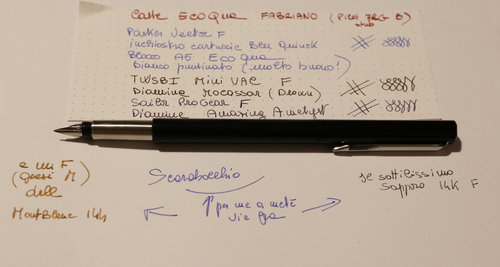 Carte EcoQua FABRIANO (Pilot 78G B)
stub
Parker Vector F
inchiostro cartuccia Ben Quinck
Blocco A5 EcoQua
Bianco puntinato (molto buono!)
TWSBI Mini VAC F
Diamine Mocassar (Dromi)
Sailor ProGear F
Diamine Amazing Amethyst
e un F
(quasi M)
della
MontBlanc 144
Scarabocchio
per me a metà
via fra
le sottilissimo
Sapporo 14K F